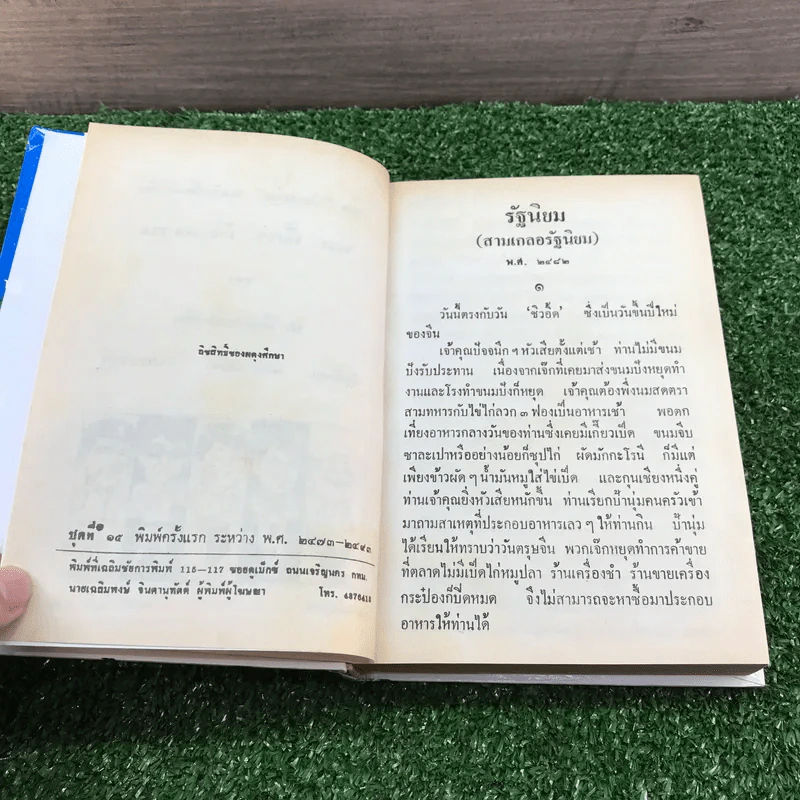 ลิขสิทธิ์ของผดุงศึกษา
ชุดที่ ๑๕ พิมพ์ครั้งแรก ระหว่าง พ.ศ. ๒๔๗๓–๒๔๙๓
พิมพ์ที่เฉลิมชัยการพิมพ์ 115—117 ซอยดูเม็กซ์ ถนนเจริญนคร กทม.
นายเฉลิมพงษ์ จินดานุทัตต์ ผู้พิมพ์ผู้โฆษณา โทร. 4376413
รัฐนิยม
(สามเกลอรัฐนิยม)
พ.ศ. ๒๔๘๒
๑
วันนี้ตรงกับวัน ‘ชิวอิด’ ซึ่งเป็นวันขึ้นปีใหม่
ของจีน
เจ้าคุณปัจจนึก ฯ หัวเสียตั้งแต่เช้า ท่านไม่มีขนม
ปังรับประทาน เนื่องจากเจ๊กที่เคยมาส่งขนมปังหยุดทำ
งานและโรงทำขนมปังก็หยุด เจ้าคุณต้องพึ่งนมสดตรา
สามทหารกับไข่ไก่ลวก ๓ ฟองเป็นอาหารเช้า พอตก
เที่ยงอาหารกลางวันของท่านซึ่งเคยมีเกี๊ยวเป็ด ขนมจีบ
ซาละเปาหรืออย่างน้อยก็ซุปไก่ ผัดมักกะโรนี ก็มีแต่
เพียงข้าวผัด ๆ น้ำมันหมูใส่ไข่เป็ด และกุนเชียงหนึ่งคู่
ท่านเจ้าคุณยิ่งหัวเสียหนักขึ้น ท่านเรียกป้านุ่มคนครัวเข้า
มาถามสาเหตุที่ประกอบอาหารเลว ๆ ให้ท่านกิน ป้านุ่ม
ได้เรียนให้ทราบว่าวันตรุษจีน พวกเจ๊กหยุดทำการค้าขาย
ที่ตลาดไม่มีเป็ดไก่หมูปลา ร้านเครื่องชำ ร้านขายเครื่อง
กระป๋องก็ปิดหมด จึงไม่สามารถจะหาซื้อมาประกอบ
อาหารให้ท่านได้